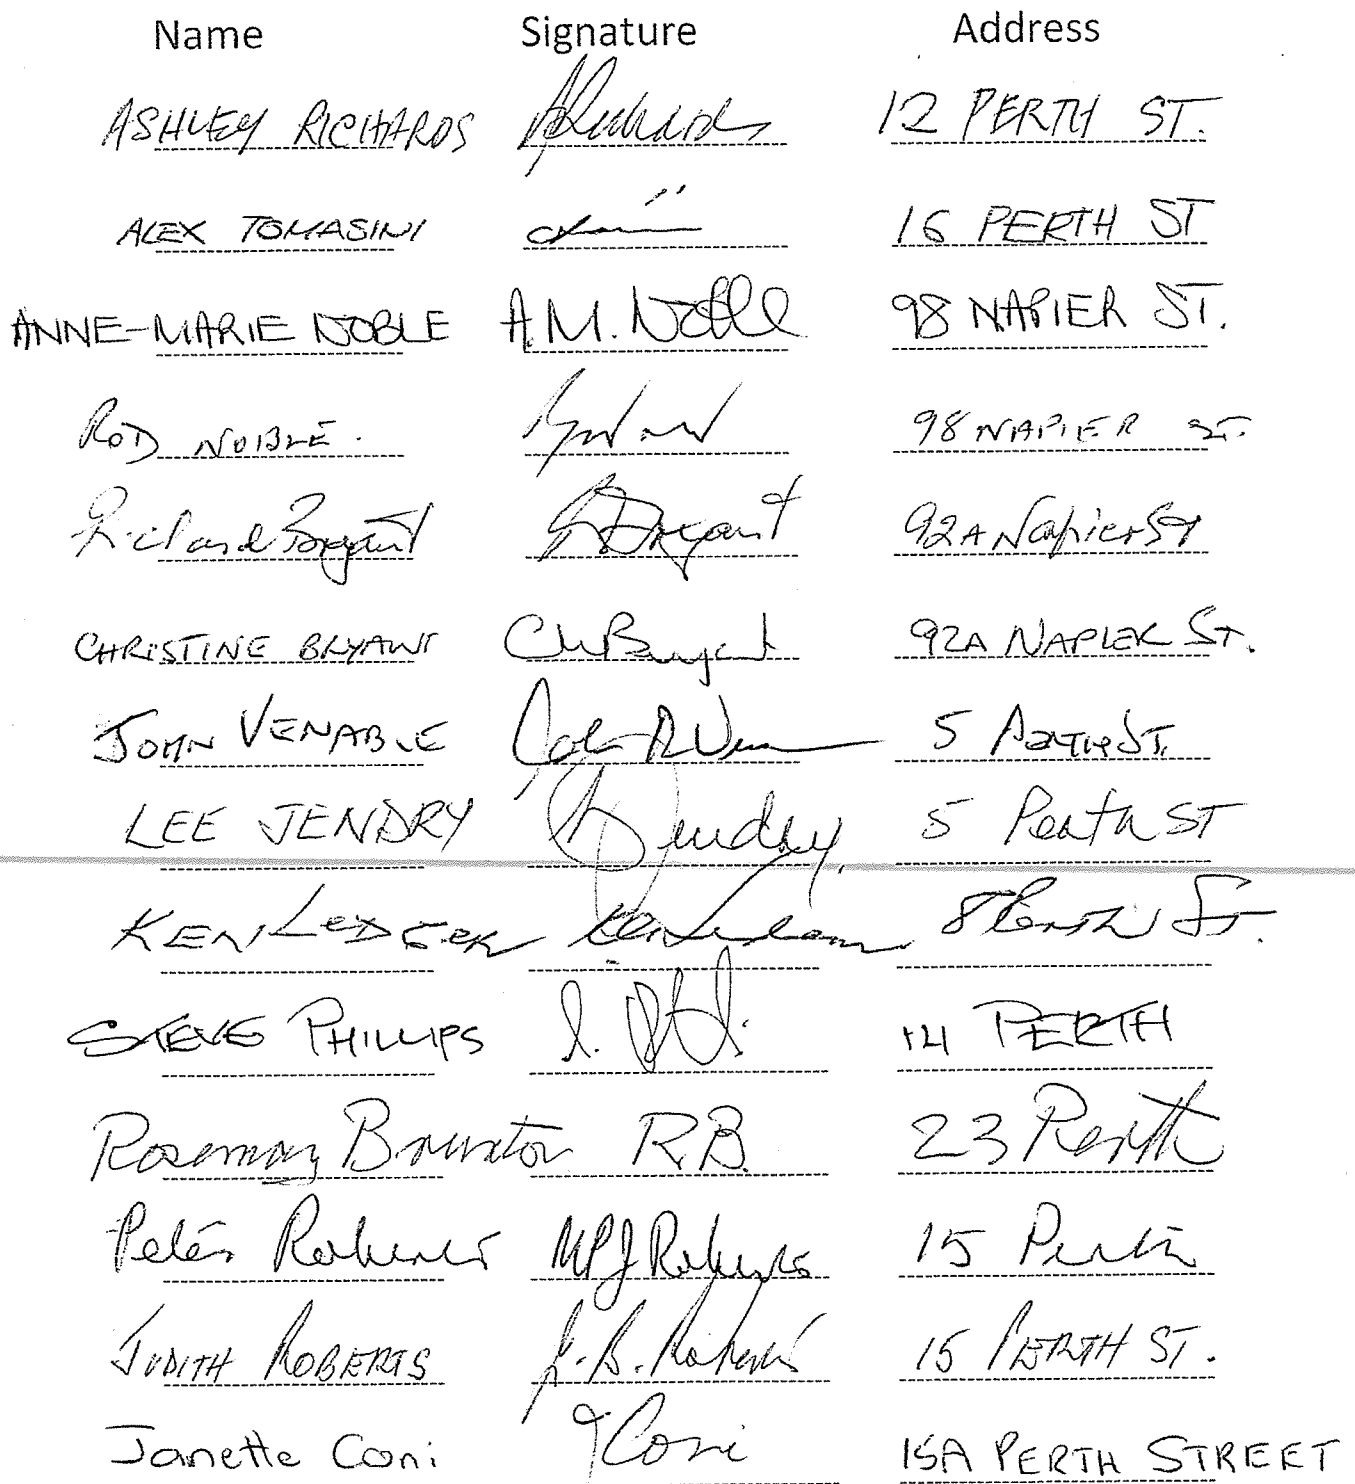 Name Signature Address
ASHLEY RICHARDS ARichards 12 PERTH ST.
ALEX TOMASINI 16 PERTH ST
ANNE-MARIE NOBLE A.M. Noble 98 NAPIER ST.
ROD NOBLE. 98 NAPIER ST.
Richard Bryant Bryant 92A Napier St
CHRISTINE BRYANT Bryant 92A NAPIER ST.
JOHN VENABLE John R Ven 5 PERTH ST.
LEE JENDRY Jendry. 5 Perth ST
KEN LEDGER 8 Perth St.
STEVE PHILLIPS 14 PERTH
Rosemary R.B. 23 Perth
Peter Roberts MPJ Roberts 15 Perth
JUDITH ROBERTS J. B. Roberts 15 PERTH ST.
Janette Coni J Coni 15A PERTH STREET